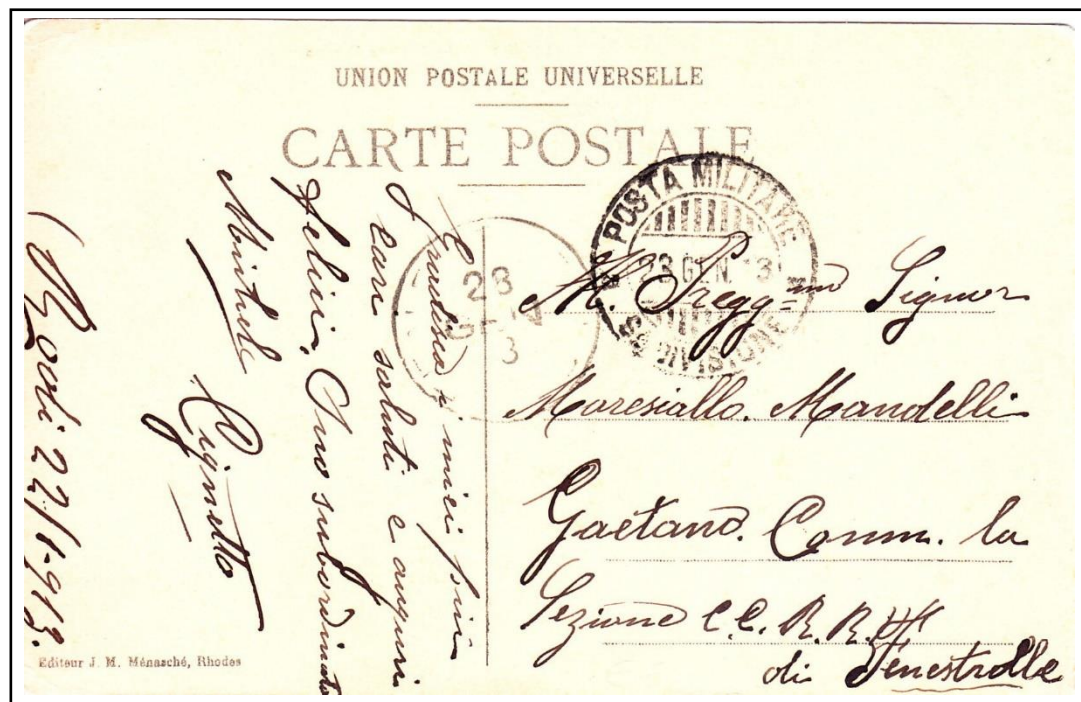 UNION POSTALE UNIVERSELLE
CARTE POSTALE
POSTA MILITARE
23 GEN. 13
DIVISIONE
23
3
Gradisca i miei più
cari saluti e auguri
felici. Suo subordinato
Rodi 22/1-913.
Al Pregg-mo Signor
Maresiallo. Mandelli
Gaetano. Comm. la
Sezione C.C. R. R.
di Fenestrelle
Editeur J. M. Ménasché, Rhodes